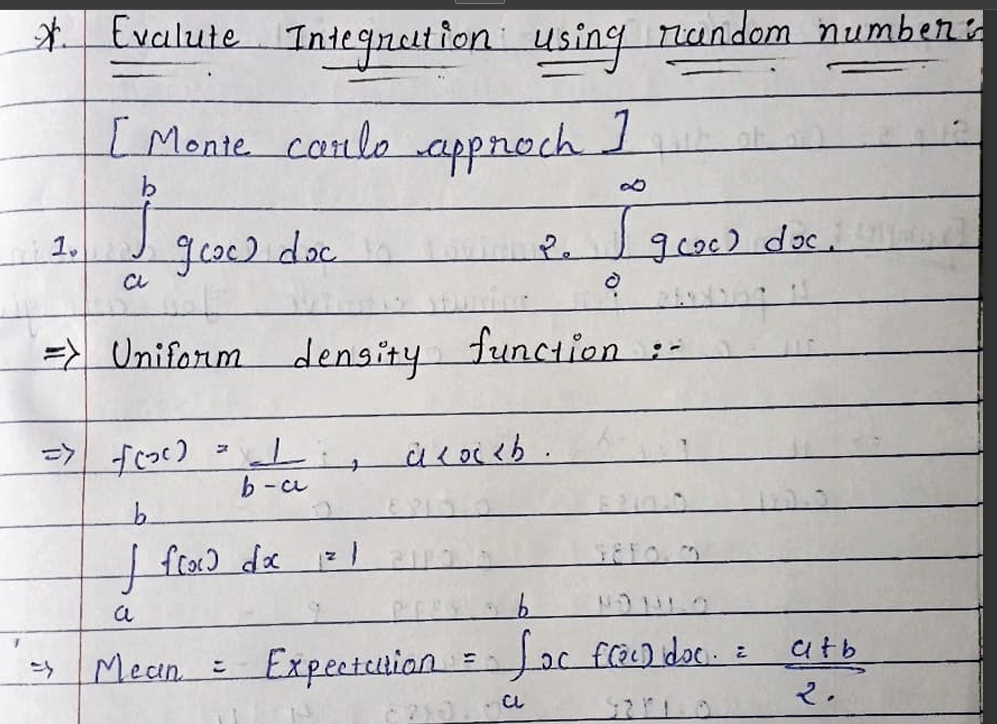 *. Evalute Integration using random number
[ Monte carlo approch ]
1. ∫ₐᵇ g(x) dx 2. ∫₀^∞ g(x) dx.
=> Uniform density function :-
=> f(x) = 1/(b-a) , a<x<b .
∫ₐᵇ f(x) dx = 1
=> Mean = Expectation = ∫ₐᵇ x f(x) dx. = (a+b)/2.